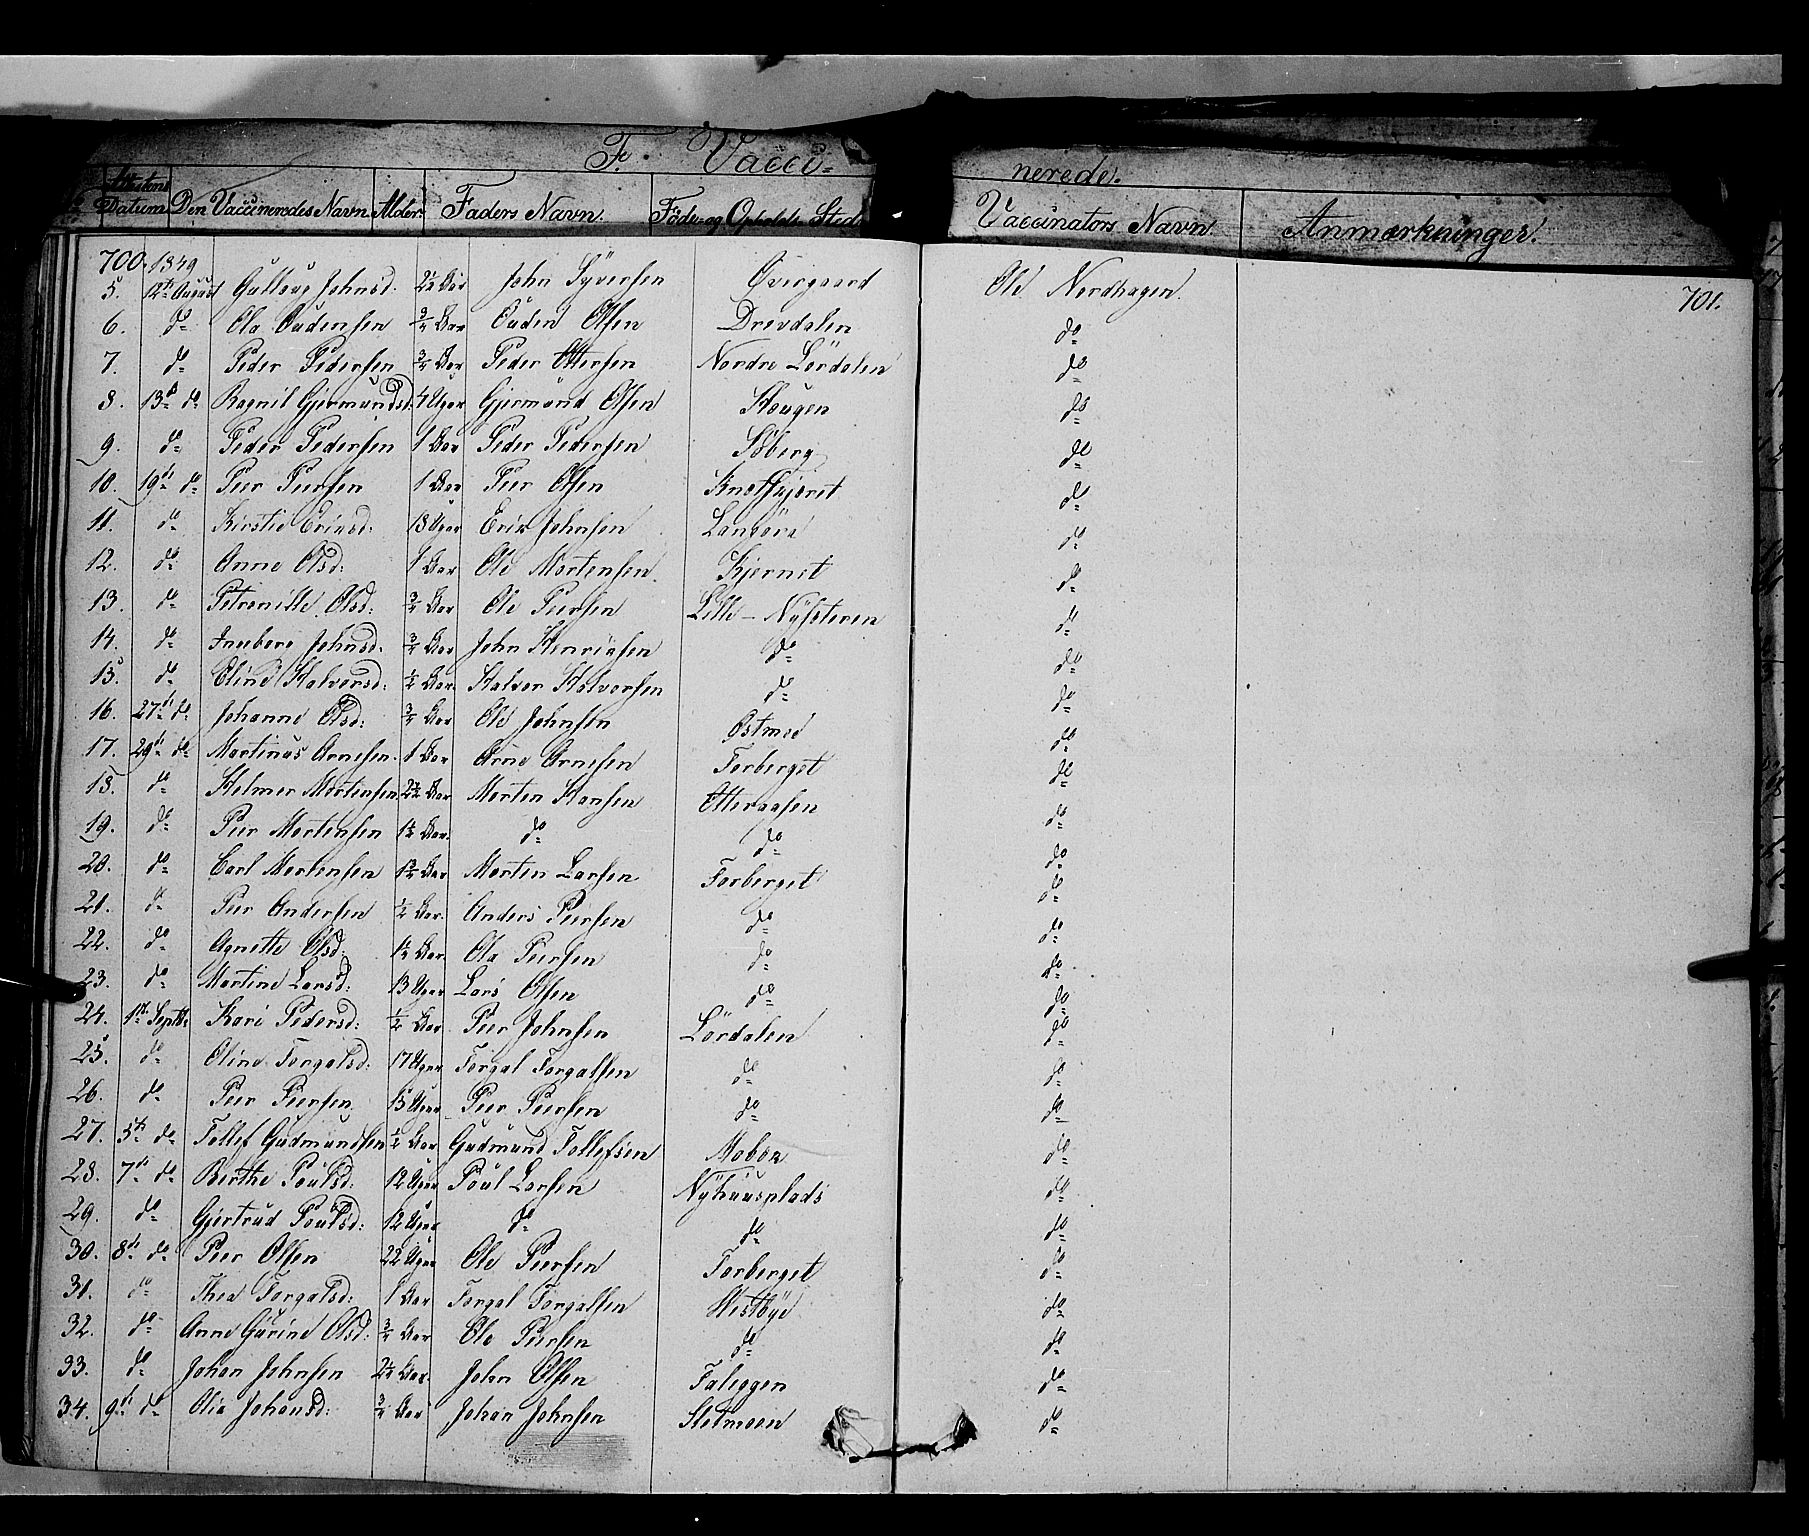 F. Vacci-nerede.
Attestens Datum Den Vaccineredes Navn Alder Faders Navn. Føde- og Opholds Sted Vaccinators Navn Anmærkninger.
700. 1849 701.
5. 12te August Johnsd. 2½ Aar John Syversen Øvergaard Ole Nordhagen.
6. do Ola Oudensen ¾ Aar Ouden Olsen Drevdalen do
7. do Peder Pedersen ¾ Aar Peder Ottersen Nordre Lørdalen do
8. 13de do Ragnil Gjermundsd. Uger Gjermund Olsen Skougen do
9. do Peder Pedersen 1 Aar Peder Pedersen Søberg do
10. 19de do Peer Peersen 1 Aar Peer Olsen do
11. do Kirstie Ericsd: 13 Uger Eric Johnsen do
12. do Anne Olsd: 1 Aar Ole Mortensen Kjernet do
13. do Petronille Olsd: ¾ Aar Ole Peersen Lille-Nysæteren do
14. do Ingeborg Johnsd: ¾ Aar John Henriksen do do
15. do Eline Halvorsd: ½ Aar Halvor Halvorsen do do
16. 27de do Johanne Olsd: ¾ Aar Ole Johnsen Østmoe do
17. 29de do Martinus Arnesen 1 Aar Arne Arnesen Forberget do
18. do Helmer Mortensen 2½ Aar Morten Hansen Otteraasen do
19. do Peer Mortensen Aar do do do
20. do Carl Mortensen Aar Morten Larsen Forberget do
21. do Peer Andersen ½ Aar Anders Peersen do do
22. do Agnethe Olsd: Aar Ola Peersen do do
23. do Martine Larsd: 13 Uger Lars Olsen do do
24. 1ste Septb: Kari Pedersd: ½ Aar Peer Johnsen Lørdalen do
25. do Oline Torgalsd: 17 Uger Torgal Torgalsen do do
26. do Peer Peersen 15 Uger Peer Peersen do do
27. 5te do Tollef Gudmundsen ½ Aar Gudmund Tollefsen do
28. 7de do Berthe Poulsd: 12 Uger Poul Larsen Nyhuusplads do
29. do Gjertrud Poulsd: 12 Uger do do do
30. 8de do Peer Olsen 22 Uger Ole Peersen Forberget do
31. do Thea Torgalsd: 1 Aar Torgal Torgalsen Westbye do
32. do Anne Gurine Olsd: ¾ Aar Ole Peersen do do
33. do Johan Johnsen 2½ Aar John Olsen Faleggen do
34. 9de do Olia Johansd: ¾ Aar Johan Johnsen Sletmoen do